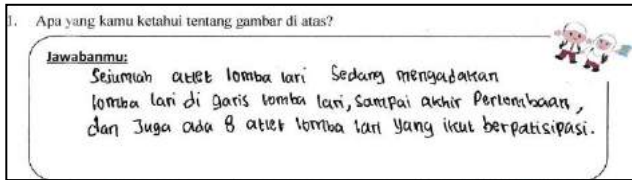 1. Apa yang kamu ketahui tentang gambar di atas?
Jawabanmu:
Sejumlah atlet lomba lari Sedang mengadakan
lomba lari di garis lomba lari, Sampai akhir Perlombaan,
dan Juga ada 8 atlet lomba lari yang ikut berpatisipasi.